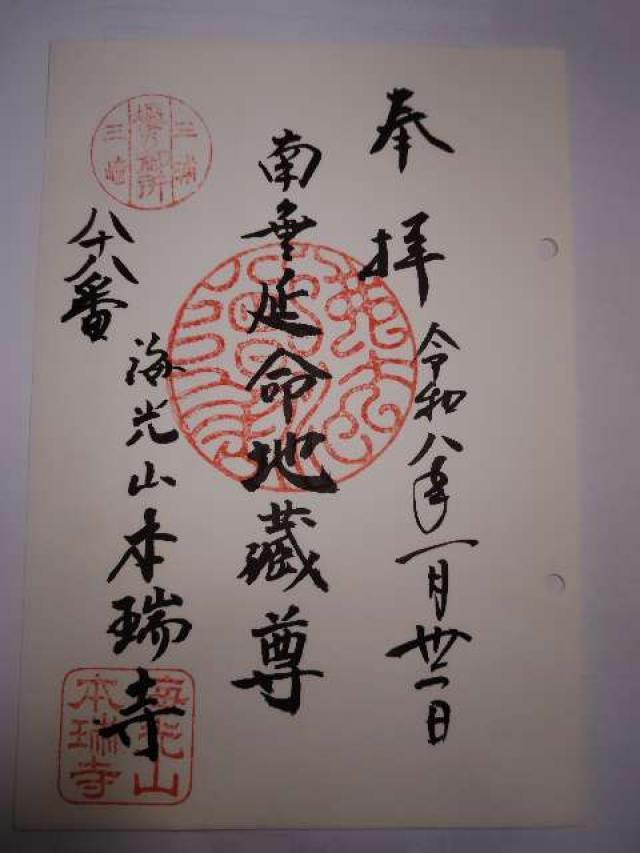 奉拝
令和八年一月卅一日
南無延命地藏尊
八十八番
海光山本瑞寺
三浦
櫻の御所
三崎
海光山
本瑞寺